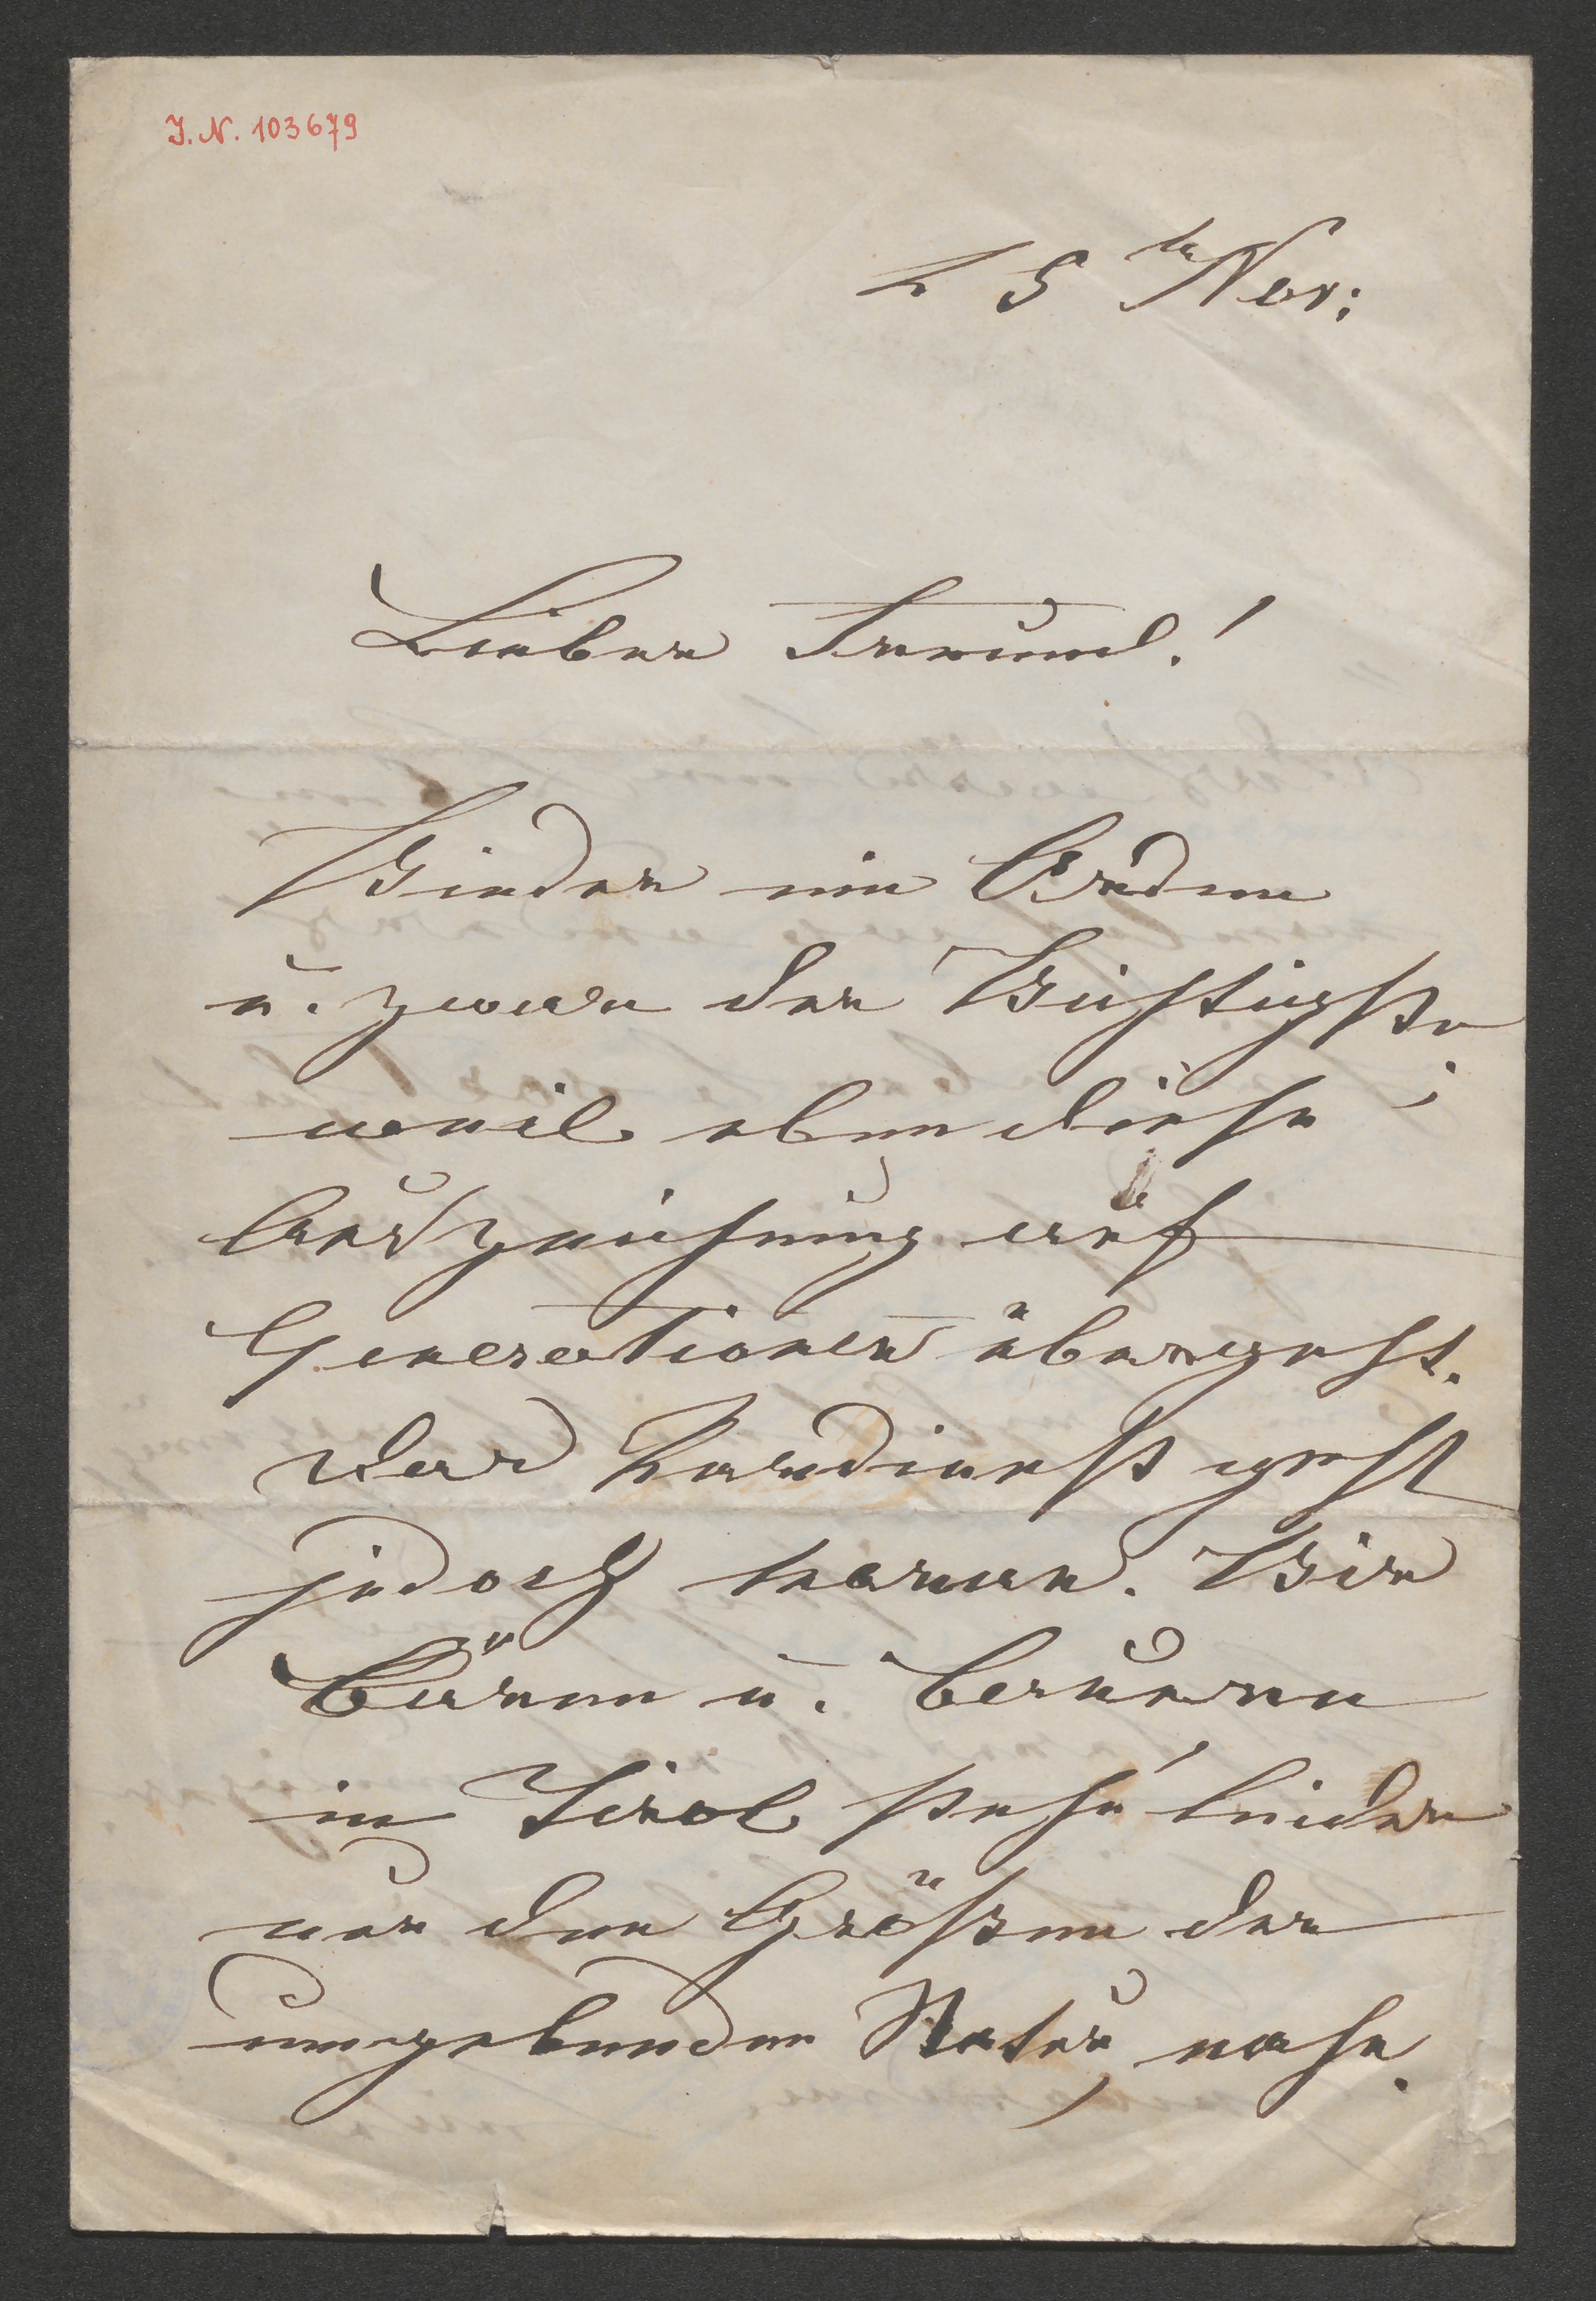 I. N. 103679
25 tn Nov:
Lieber Freund!
Wieder ein Orden
u. zwar der Wichtigste
weil eben diese
Auszeichnung auf
Generationen übergeht.
Das Verdienst geht
jedoch voraus. Wir
Bären u. Bauern
in Tirol stehn leider
nur den Größen der
umgebenden Natur nahe.